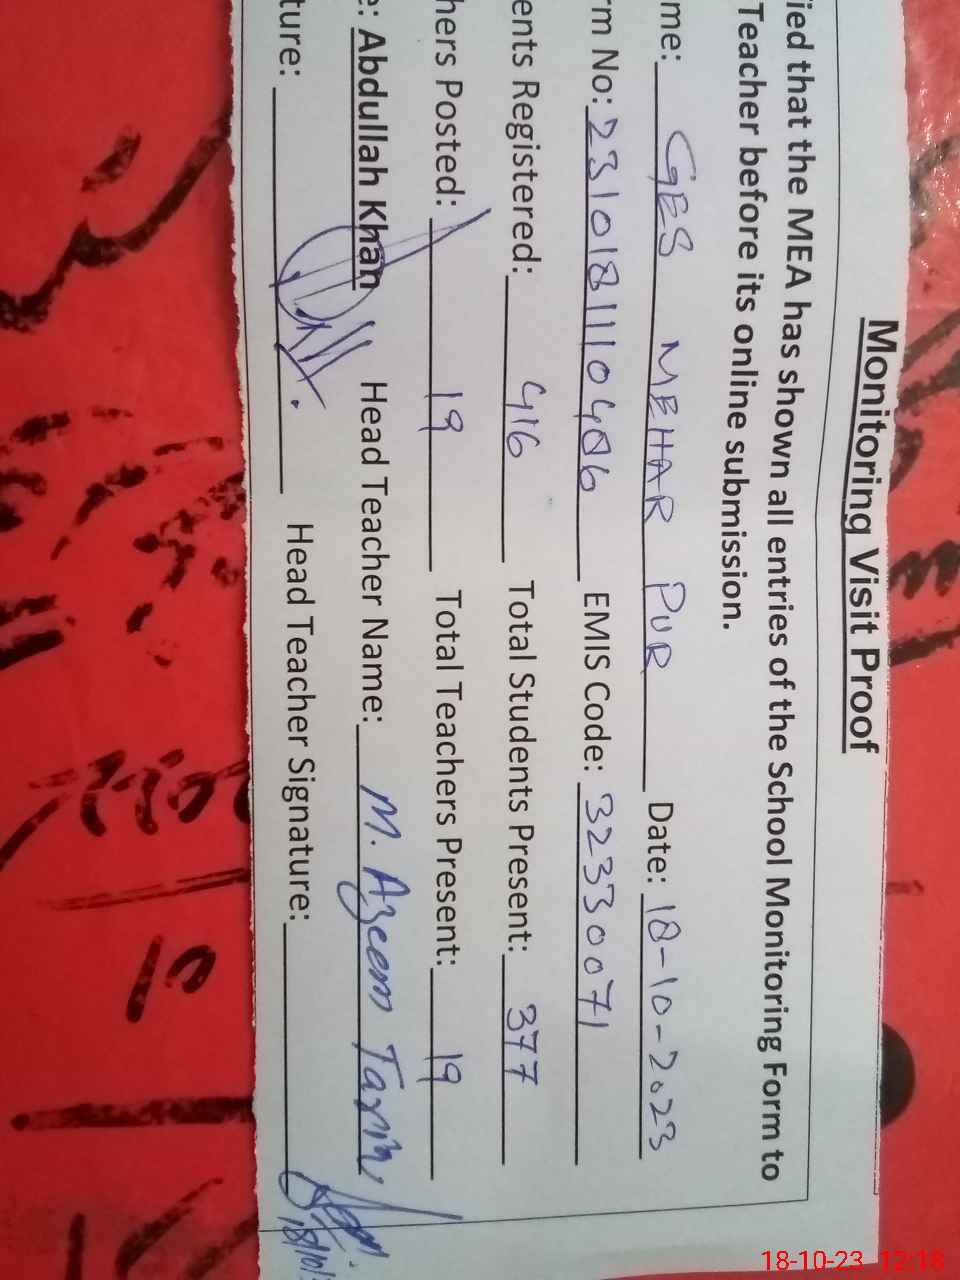 Monitoring Visit Proof
ied that the MEA has shown all entries of the School Monitoring Form to
Teacher before its online submission.
me: GES MEHAR PUR Date: 18-10-2023
rm No: 2310181110406 EMIS Code: 32330071
ents Registered: 416 Total Students Present: 377
hers Posted: 19 Total Teachers Present: 19
e: Abdullah Khan Head Teacher Name: M. Azeem Tarin
ture: Head Teacher Signature:
18/10/
18-10-23 12:18